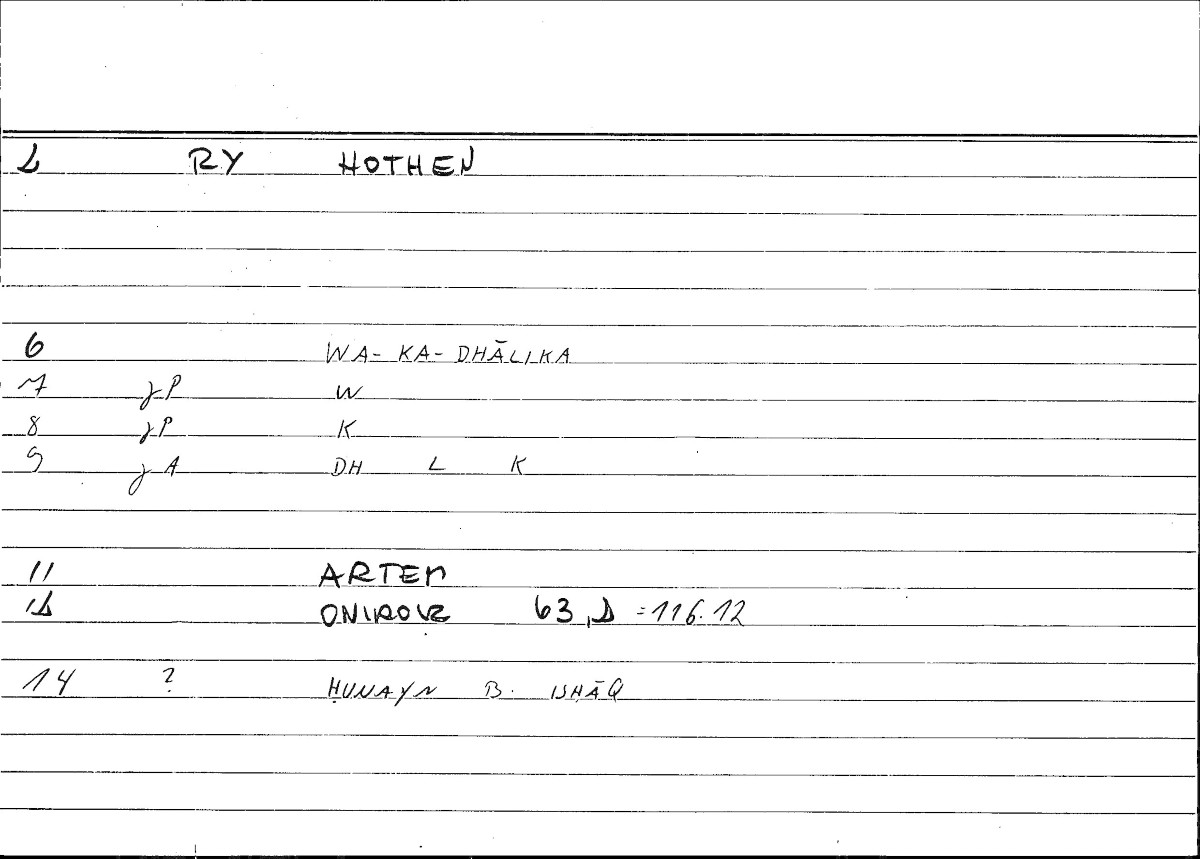 2 RY HOTHEN
6 WA- KA- DHĀLIKA
7 jP W
8 jP K
9 jA DH L K
11 ARTEM
12 ONIROCR 63,2 = 116.12
14 ? ḤUNAYN B. ISḤĀQ